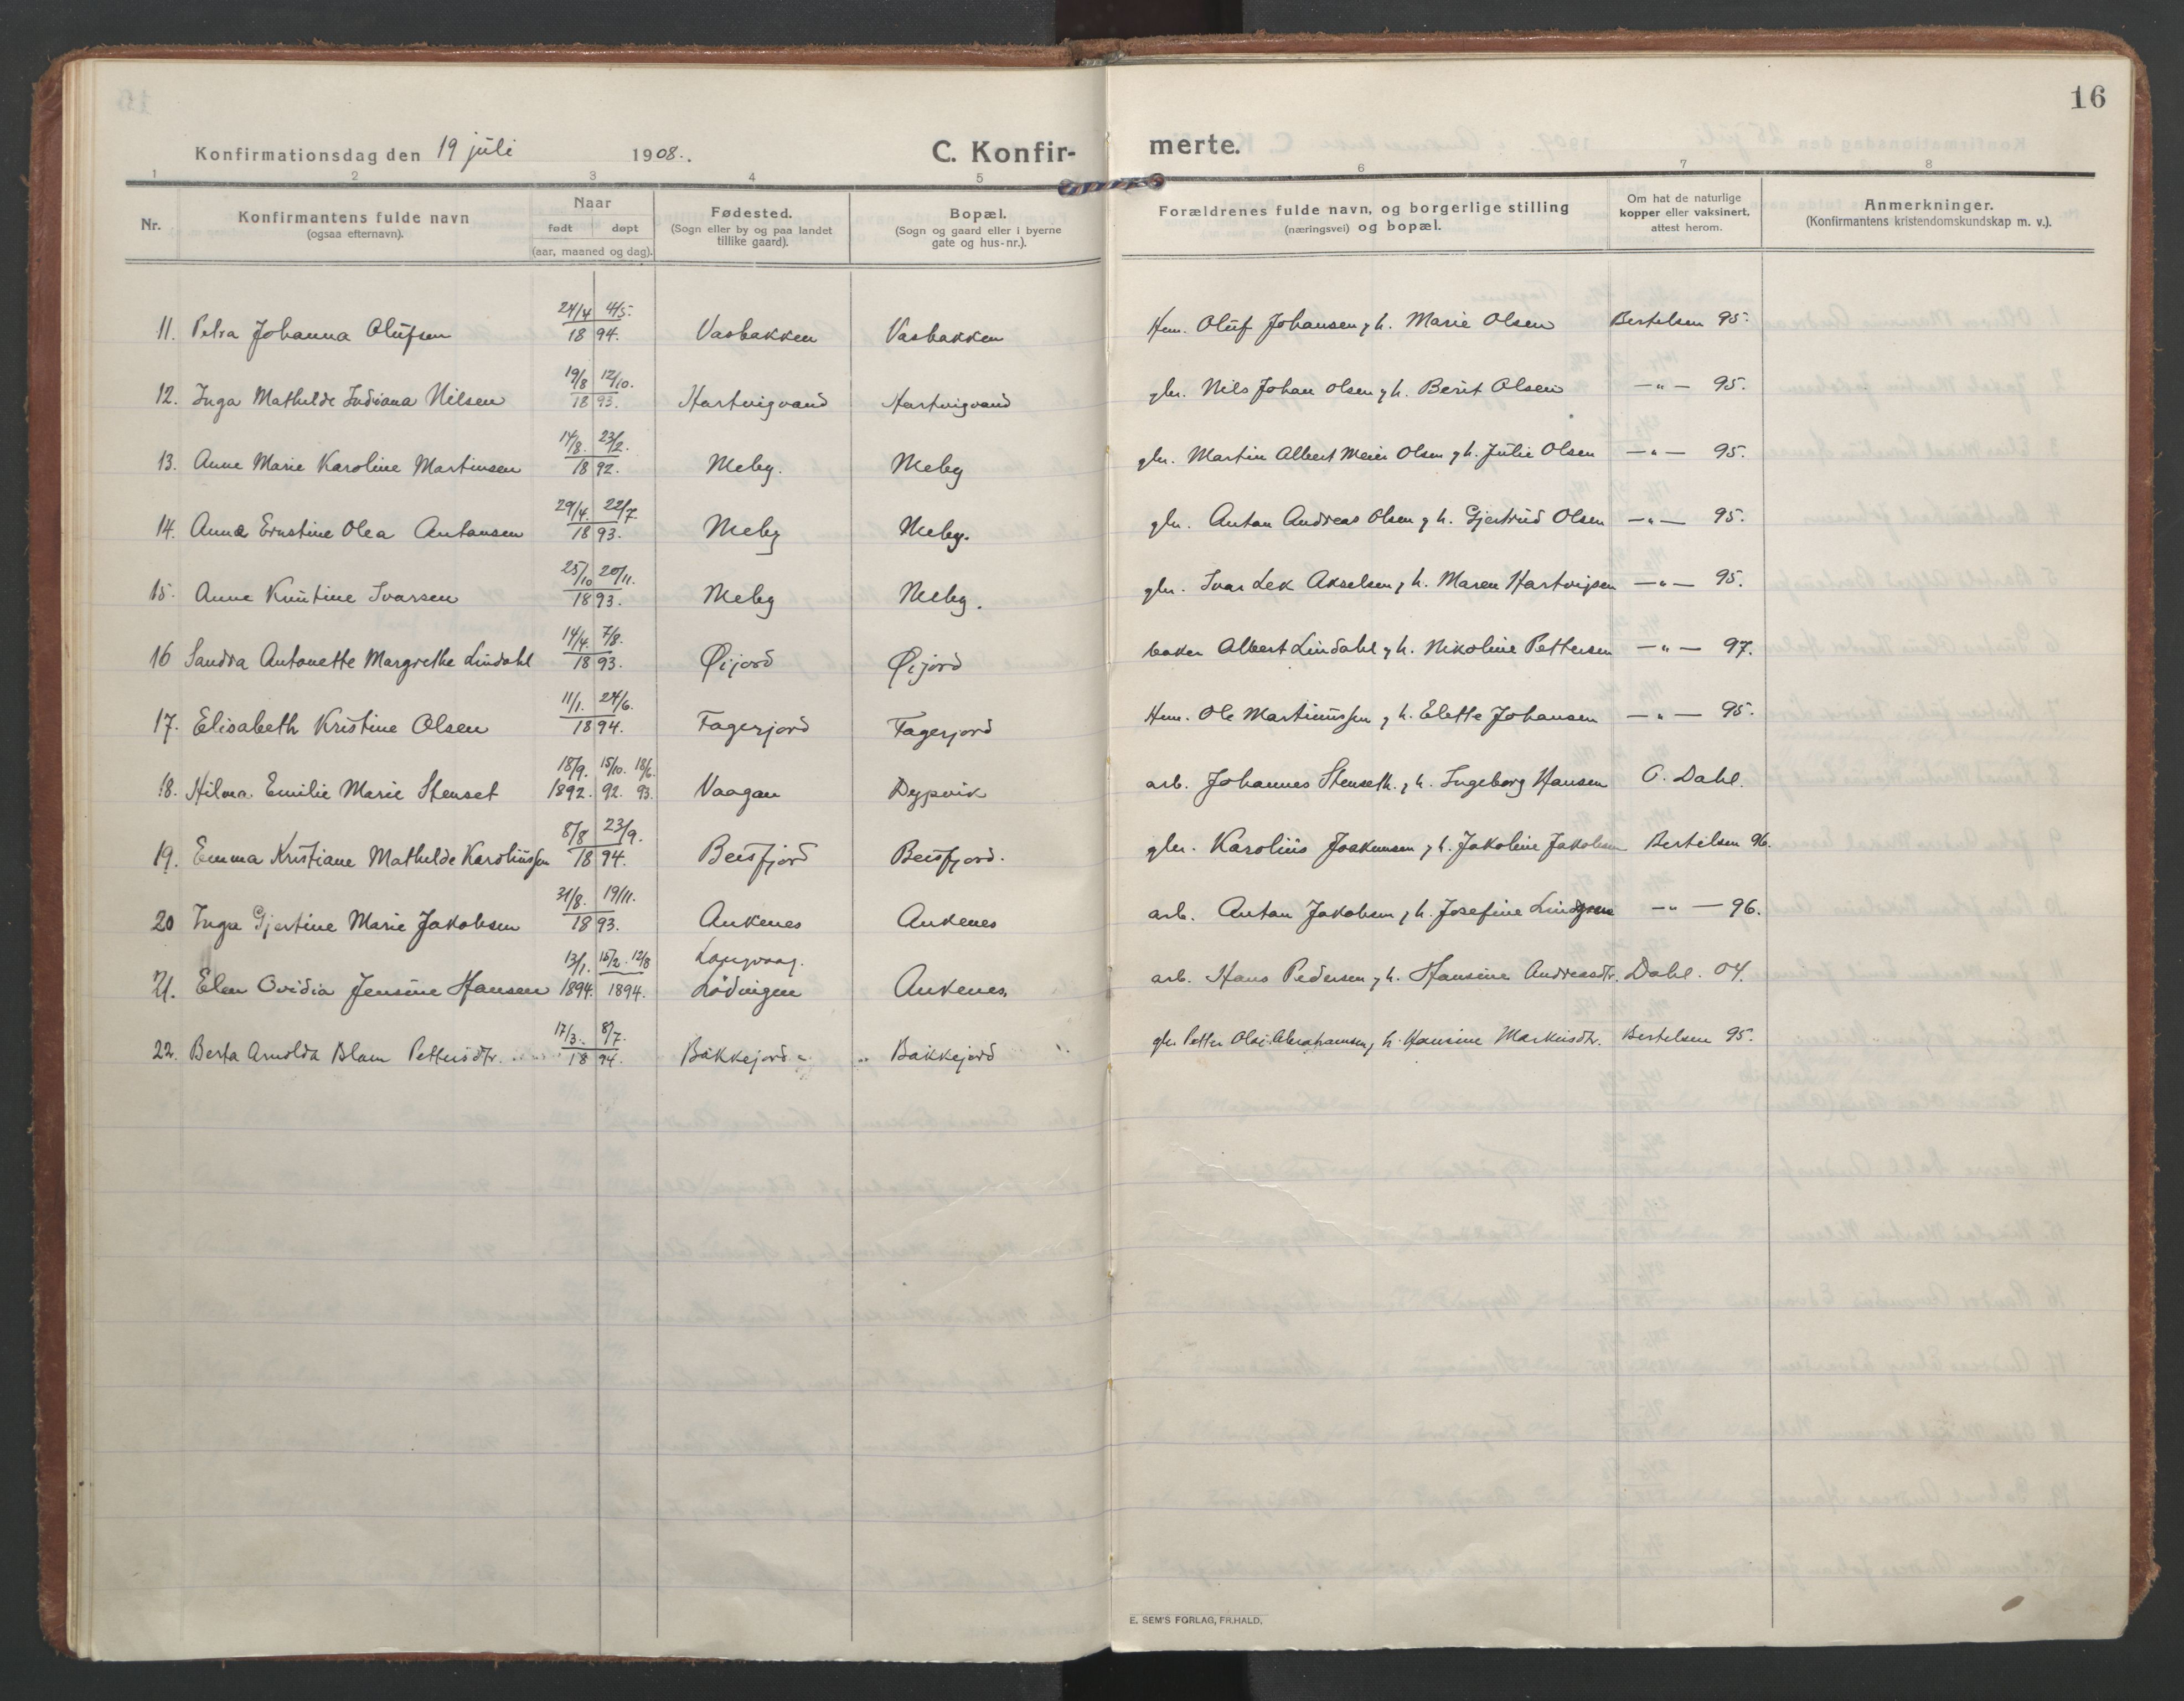 16
Konfirmationsdag den 19 juli 1908.
C. Konfir-
merte.
1 2 3 4 5 6 7 8
Nr.
Konfirmantens fulde navn
(ogsaa efternavn).
Naar
født døpt
(aar, maaned og dag).
Fødested.
(Sogn eller by og paa landet
tillike gaard).
Bopæl.
(Sogn og gaard eller i byerne
gate og hus-nr.).
Forældrenes fulde navn, og borgerlige stilling
(næringsvei) og bopæl.
Om hat de naturlige
kopper eller vaksinert,
attest herom.
Anmerkninger.
(Konfirmantens kristendomskundskap m. v.).
24/4 4/5.
11. Petra Johanna Olufsen 18 94. Vasbakken Vasbakken Hem. Oluf Johansen, h. Marie Olsen Bertelsen 95.
19/8 12/10.
12. Inga Mathilde Indiana Nilsen 18 93. Hartvigvand Hartvigvand gbr. Nils Johan Olsen, h. Berit Olsen —"— 95.
14/8. 23/2.
13. Anne Marie Karoline Martinsen 18 92. Meby. Meby gbr. Martin Albert Meier Olsen, h. Julie Olsen —"— 95.
29/4. 22/7.
14. Anna Ernstine Olea Antonsen 18 93. Meby Meby. gbr. Anton Andreas Olsen, h. Gjertrud Olsen —"— 95.
25/10 20/11.
15. Anne Kristine Ivarsen 18 93. Meby Meby. gbr. Ivar Lek Akselsen, h. Maren Hartvigsen —"— 95.
14/4. 7/8.
16 Sandra Antonette Margrethe Lindahl 18 93. Øijord Øijord baker Albert Lindahl, h. Nikoline Pettersen —"— 97.
11/1. 24/6.
17. Elisabeth Kristine Olsen 18 94. Fagerjord Fagerjord Hem. Ole Martinussen, h. Elette Johansen —"— 95.
18/9. 15/10. 18/6.
18. Hilma Emilie Marie Stenset 1892. 92. 93. Vaagan Dypvik arb. Johannes Stenseth, h. Ingeborg Hansen O. Dahl.
8/8 23/9.
19. Emma Kristiane Mathilde Karoliussen 18 94. Beisfjord Beisfjord. gbr. Karolius Joakimsen, h. Jakoline Jakobsen Bertelsen 96.
31/8. 19/11.
20 Inga Gjertine Marie Jakobsen 18 93. Ankenes Ankenes arb. Anton Jakobsen, h. Josefine Lindgren —"— 96.
13/1. 15/2. 12/8 Langvaag.
21. Elen Ovidia Jensine Hansen 1894. 1894. Lødingen Ankenes. arb. Hans Pedersen, h. Hansine Andreasdtr. Dahl. 04.
17/3. 8/7.
22. Berta Arnolda Blam Pettersdtr. 18 94. Bakkejord Bakkejord gbr Petter Olai Abrahamsen, h. Hansine Markusdtr. Bertelsen 95.
E. SEM'S FORLAG, FR.HALD.